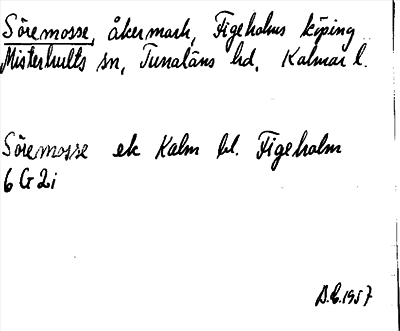 Söremosse, åkermark, Figeholms köping
Misterhults sn, Tunaläns hd, Kalmar l.
Söremosse ek Kalm bl. Figeholm
6 G 2i
1957